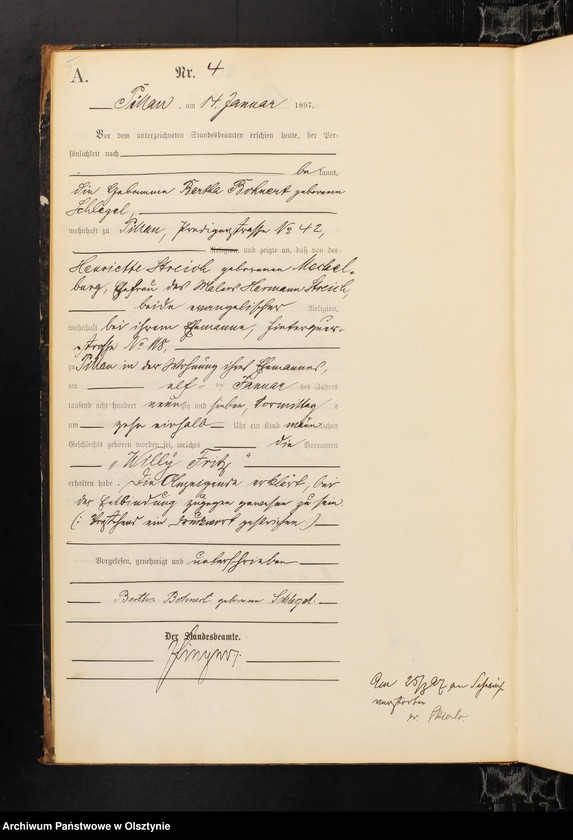 A.
Nr. 4
Pillau, am 14. Januar 1897.
Vor dem unterzeichneten Standesbeamten erschien heute, der Per-
sönlichkeit nach
be kannt,
die Hebamme Bertha Bohnert geborene
Schlegel,
wohnhaft zu Pillau, Predigerstrasse No 42,
Religion, und zeigte an, daß von der
Henriette Streich geborenen Meckel-
burg, Ehefrau des Malers Hermann Streich,
beide evangelischer Religion,
wohnhaft bei ihrem Ehemanne, Hinterquer-
strasse No
zu Pillau in der Wohnung ihres Ehemannes,
am elf ten Januar des Jahres
tausend acht hundert neunzig und sieben, Vormittag s
um zehn einhalb Uhr ein Kind männlichen
Geschlechts geboren worden sei, welches die Vornamen
„Willy Fritz“
erhalten habe. Die Anzeigende erklärt, bei
der Entbindung zugegen gewesen zu sein.
(: Vorstehend ein Druckwort gestrichen :)
Vorgelesen, genehmigt und unterschrieben
Bertha Bohnert geborene Schlegel.
Der Standesbeamte.
Am 25/3 97
verstorben
Archiwum Państwowe w Olsztynie